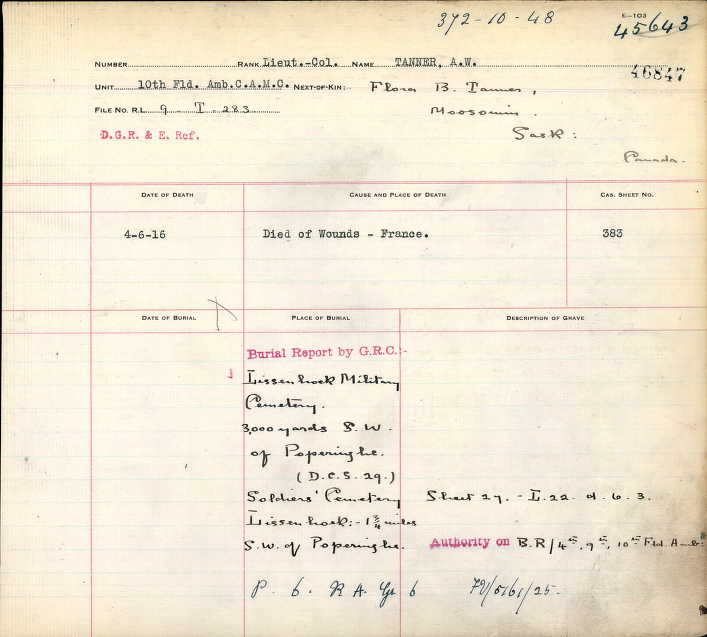 372-10-48
E-103
45643
NUMBER RANK Lieut.-Col. NAME TANNER, A.W.
46847
UNIT 10th Fld. Amb.C.A.M.C. NEXT-OF-KIN:- Flora B. Tanner,
FILE NO. R.L. 9 - T - 283 Moosomin.
D.G.R. & E. Ref. Sask:
Canada.
DATE OF DEATH CAUSE AND PLACE OF DEATH CAS. SHEET NO.
4-6-16 Died of Wounds - France. 383
DATE OF BURIAL PLACE OF BURIAL DESCRIPTION OF GRAVE
Burial Report by G.R.C.:-
Lissenhoek Military
Cemetery.
3,000 yards S.W.
of Poperinghe.
(D.C.S. 29.)
Soldiers' Cemetery Sheet 27. - L.22. d. 6. 3.
Lissenhoek:- 1 3/4 miles
S.W. of Poperinghe. Authority on B.R/4th, 9th, 10th Fld. Amb:
P. 6. R A. Gr 6